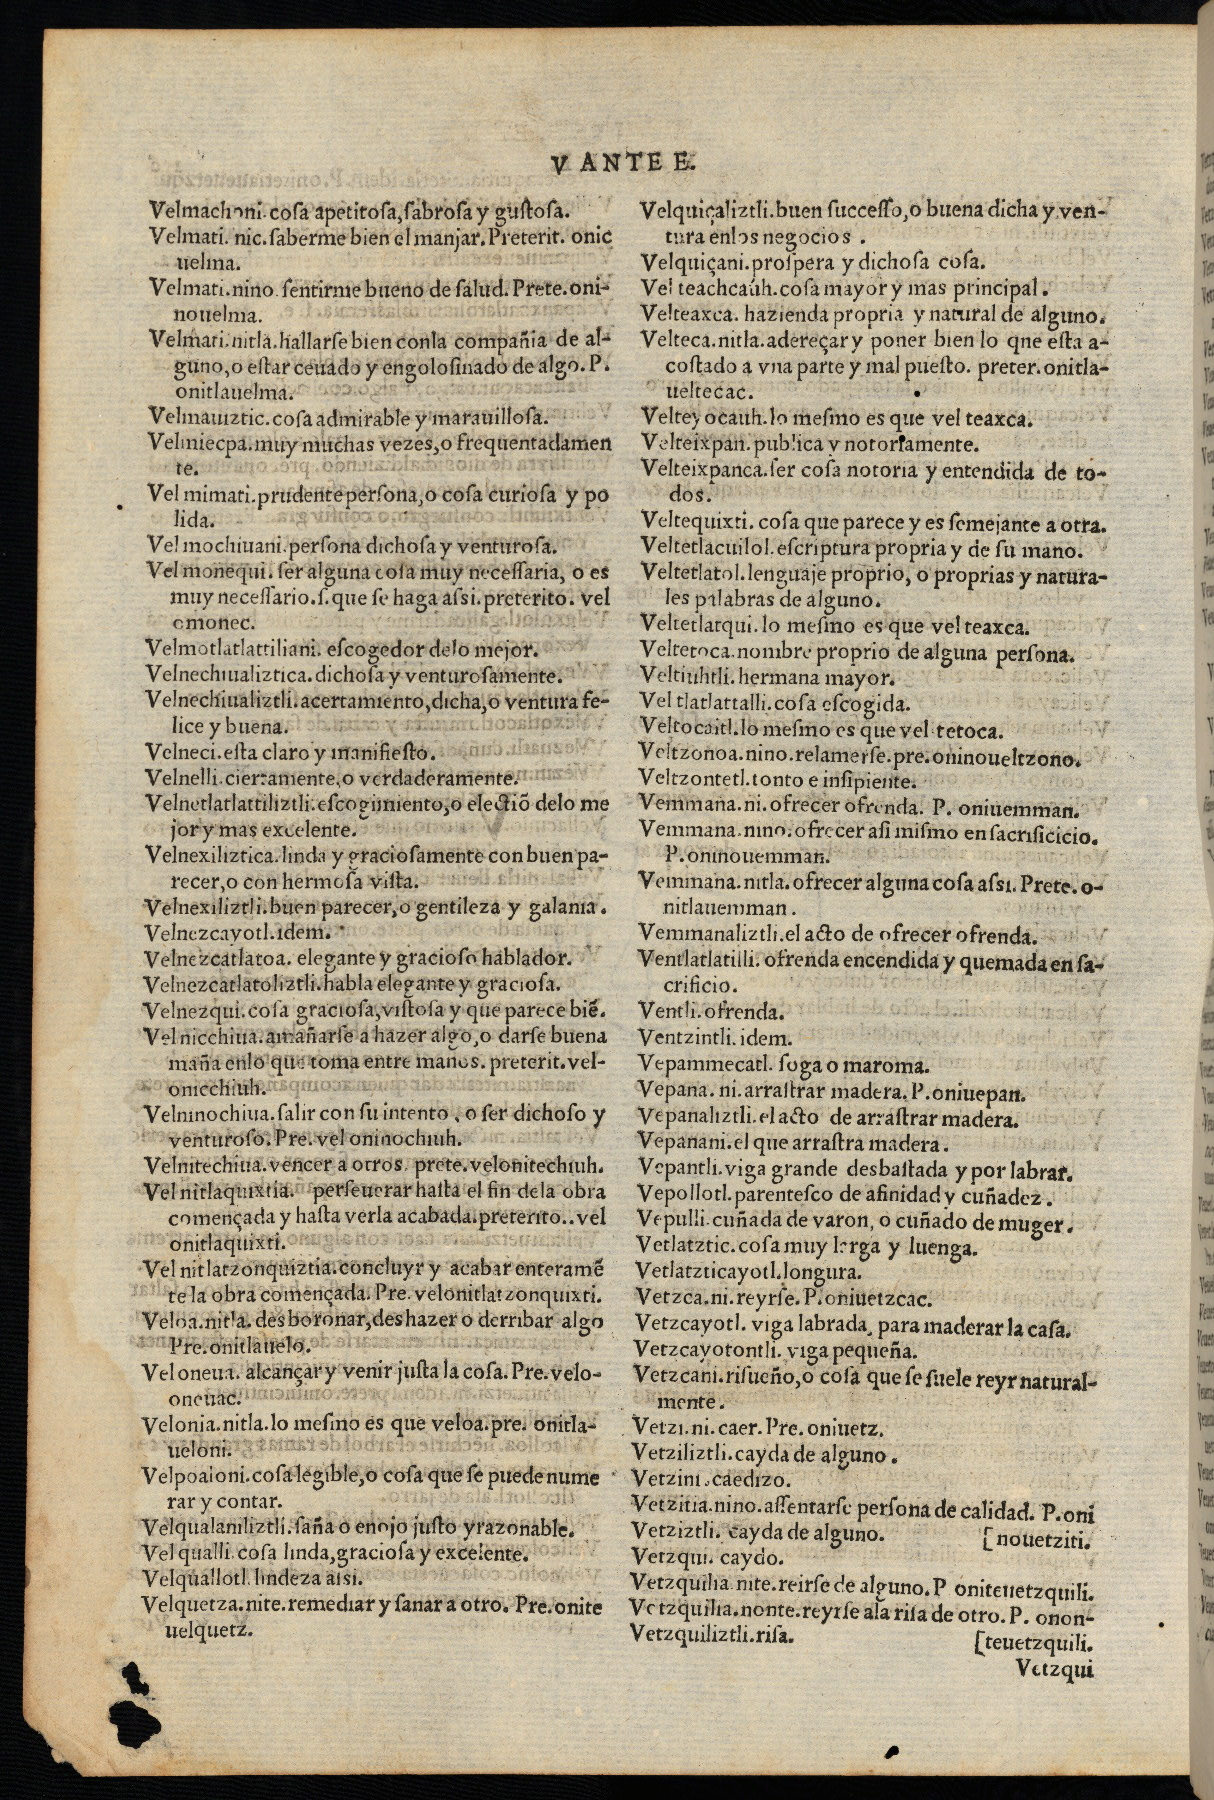 V ANTE E.
Velmachoni. cosa apetitosa, sabrosa y gustosa.
Velmati. nic. saberme bien el manjar. Preterit. onic
uelma.
Velmati. nino. sentirme bueno de salud. Prete. oni-
nouelma.
Velmati. nitla. hallarse bien conla compañia de al-
guno, o estar ceuado y engolosinado de algo. P.
onitlauelma.
Velmauiztic. cosa admirable y marauillosa.
Velmiecpa. muy muchas vezes, o frequentadamen
te.
Vel mimati. prudente persona, o cosa curiosa y po
lida.
Vel mochiuani. persona dichosa y venturosa.
Vel monequi. ser alguna cosa muy necessaria, o es
muy necessario. s. que se haga assi. preterito. vel
omonec.
Velmotlatlattiliani. escogedor delo mejor.
Velnechiualiztica. dichosa y venturosamente.
Velnechiualiztli. acertamiento, dicha, o ventura fe-
lice y buena.
Velneci. esta claro y manifiesto.
Velnelli. ciertamente, o verdaderamente.
Velnetlatlattiliztli. escogimiento, o electiõ delo me
jor y mas excelente.
Velnexiliztica. linda y graciosamente con buen pa-
recer, o con hermosa vista.
Velnexiliztli. buen parecer, o gentileza y galania.
Velnezcayotl. idem.
Velnezcatlatoa. elegante y gracioso hablador.
Velnezcatlatoliztli. habla elegante y graciosa.
Velnezqui. cosa graciosa, vistosa y que parece biẽ.
Vel nicchiua. amañarse a hazer algo, o darse buena
maña enlo que toma entre manos. preterit. vel-
onicchiuh.
Velninochiua. salir con su intento, o ser dichoso y
venturoso. Pre. vel oninochiuh.
Velnitechiua. vencer a otros. prete. velonitechiuh.
Vel nitlaquixtia. perseuerar hasta el fin dela obra
començada y hasta verla acabada. preterito.. vel
onitlaquixti.
Vel nitlatzonquiztia. concluyr y acabar enteramẽ
te la obra començada. Pre. velonitlatzonquixti.
Veloa. nitla. desboronar, deshazer o derribar algo
Pre. onitlauelo.
Vel oneua. alcançar y venir justa la cosa. Pre. velo-
oneuac.
Velonia. nitla. lo mesmo es que veloa. pre. onitla-
ueloni.
Velpoaloni. cosa legible, o cosa que se puede nume
rar y contar.
Velqualaniliztli. saña o enojo justo y razonable.
Vel qualli. cosa linda, graciosa y excelente.
Velquallotl. lindeza assi.
Velquetza. nite. remediar y sanar a otro. Pre. onite
uelquetz.
Velquiçaliztli. buen successo, o buena dicha y ven-
tura enlos negocios.
Velquiçani. prospera y dichosa cosa.
Vel teachcauh. cosa mayor y mas principal.
Velteaxca. hazienda propria y natural de alguno.
Velteca. nitla. adereçar y poner bien lo qne esta a-
costado a vna parte y mal puesto. preter. onitla-
ueltecac.
Velteyocauh. lo mesmo es que vel teaxca.
Velteixpan. publica y notoriamente.
Velteixpanca. ser cosa notoria y entendida de to-
dos.
Veltequixti. cosa que parece y es semejante a otra.
Veltetlacuilol. escriptura propria y de su mano.
Veltetlatol. lenguaje proprio, o proprias y natura-
les palabras de alguno.
Veltetlatqui. lo mesmo es que vel teaxca.
Veltetoca. nombre proprio de alguna persona.
Veltiuhtli. hermana mayor.
Vel tlatlattalli. cosa escogida.
Veltocaitl. lo mesmo es que vel tetoca.
Veltzonoa. nino. relamerse. pre. oninoueltzono.
Veltzontetl. tonto e insipiente.
Vemmana. ni. ofrecer ofrenda. P. oniuemman.
Vemmana. nino. ofrecer asi mismo en sacrisicicio.
P. oninouemman.
Vemmana. nitla. ofrecer alguna cosa assi. Prete. o-
nitlauemman.
Vemmanaliztli. el acto de ofrecer ofrenda.
Ventlatlatilli. ofrenda encendida y quemada en sa-
crificio.
Ventli. ofrenda.
Ventzintli. idem.
Vepammecatl. soga o maroma.
Vepana. ni. arrastrar madera. P. oniuepan.
Vepanaliztli. el acto de arrastrar madera.
Vepanani. el que arrastra madera.
Vepantli. viga grande desbastada y por labrar.
Vepollotl. parentesco de afinidad y cuñadez.
Vepulli. cuñada de varon, o cuñado de muger.
Vetlatztic. cosa muy larga y luenga.
Vetlatzticayotl. longura.
Vetzca. ni. reyrse. P. oniuetzcac.
Vetzcayotl. viga labrada, para maderar la casa.
Vetzcayotontli. viga pequeña.
Vetzcani. risueño, o cosa que se suele reyr natural-
mente.
Vetzi. ni. caer. Pre. oniuetz.
Vetziliztli. cayda de alguno.
Vetzini. caedizo.
Vetzitia. nino. assentarse persona de calidad. P. oni
Vetziztli. cayda de alguno. [nouetziti.
Vetzqui. caydo.
Vetzquilia. nite. reirse de alguno. P oniteuetzquili.
Vetzquilia. nonte. reyrse ala risa de otro. P. onon-
Vetzquiliztli. risa. [teuetzquili.
Vetzqui